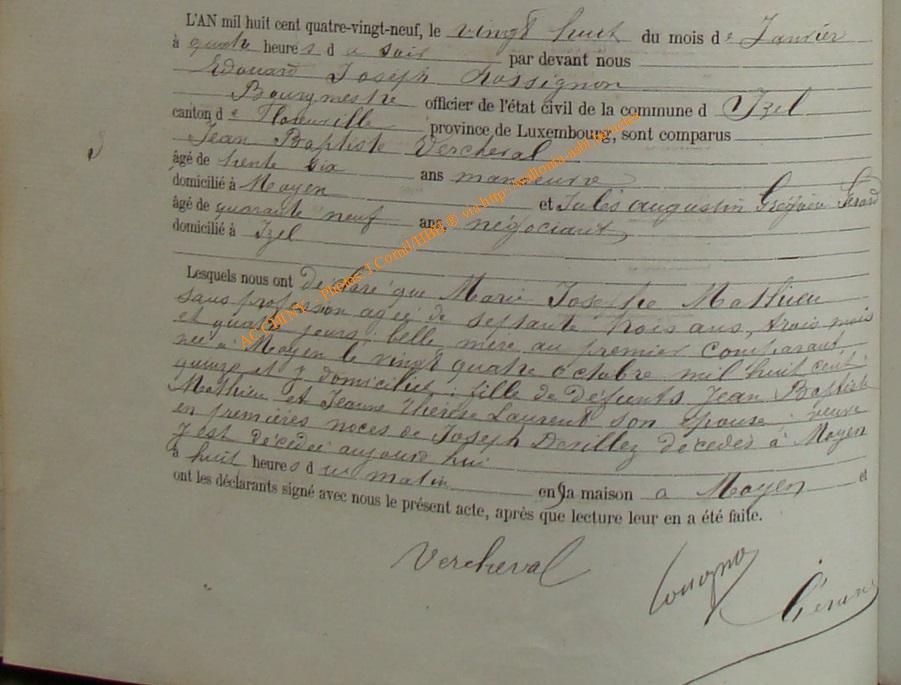 L'AN mil huit cent quatre-vingt-neuf, le vingt huit du mois de Janvier
à quatre heures du soir par devant nous
Edouard Joseph Rossignon
Bourgmestre officier de l'état civil de la commune d Izel
canton de Florenville province de Luxembourg, sont comparus
Jean Baptiste Vercheval
âgé de trente six ans manoeuvre
domicilié à Moyen et Jules Augustin Grégoire Gérard
âgé de quarante neuf ans négociant
domicilié à Izel
Lesquels nous ont déclaré que Marie Josephe Mathieu
sans profession agée de septante trois ans, trois mois
et quatre jours, belle mère au premier comparant
née à Moyen le vingt quatre octobre mil huit cent
quinze et y domiciliée; fille de défunts Jean Baptiste
Mathieu et Jeanne Thérèse Laurent son épouse; veuve
en premières noces de Joseph Devillez décédé à Moyen
y est décédée aujourd'hui
à huit heures du matin en sa maison a Moyen et
ont les déclarants signé avec nous le présent acte, après que lecture leur en a été faite.
Vercheval
Gérard
ACCHINY - Photos J.Corail/HDH® via http://wallonia-asbl.be/actes